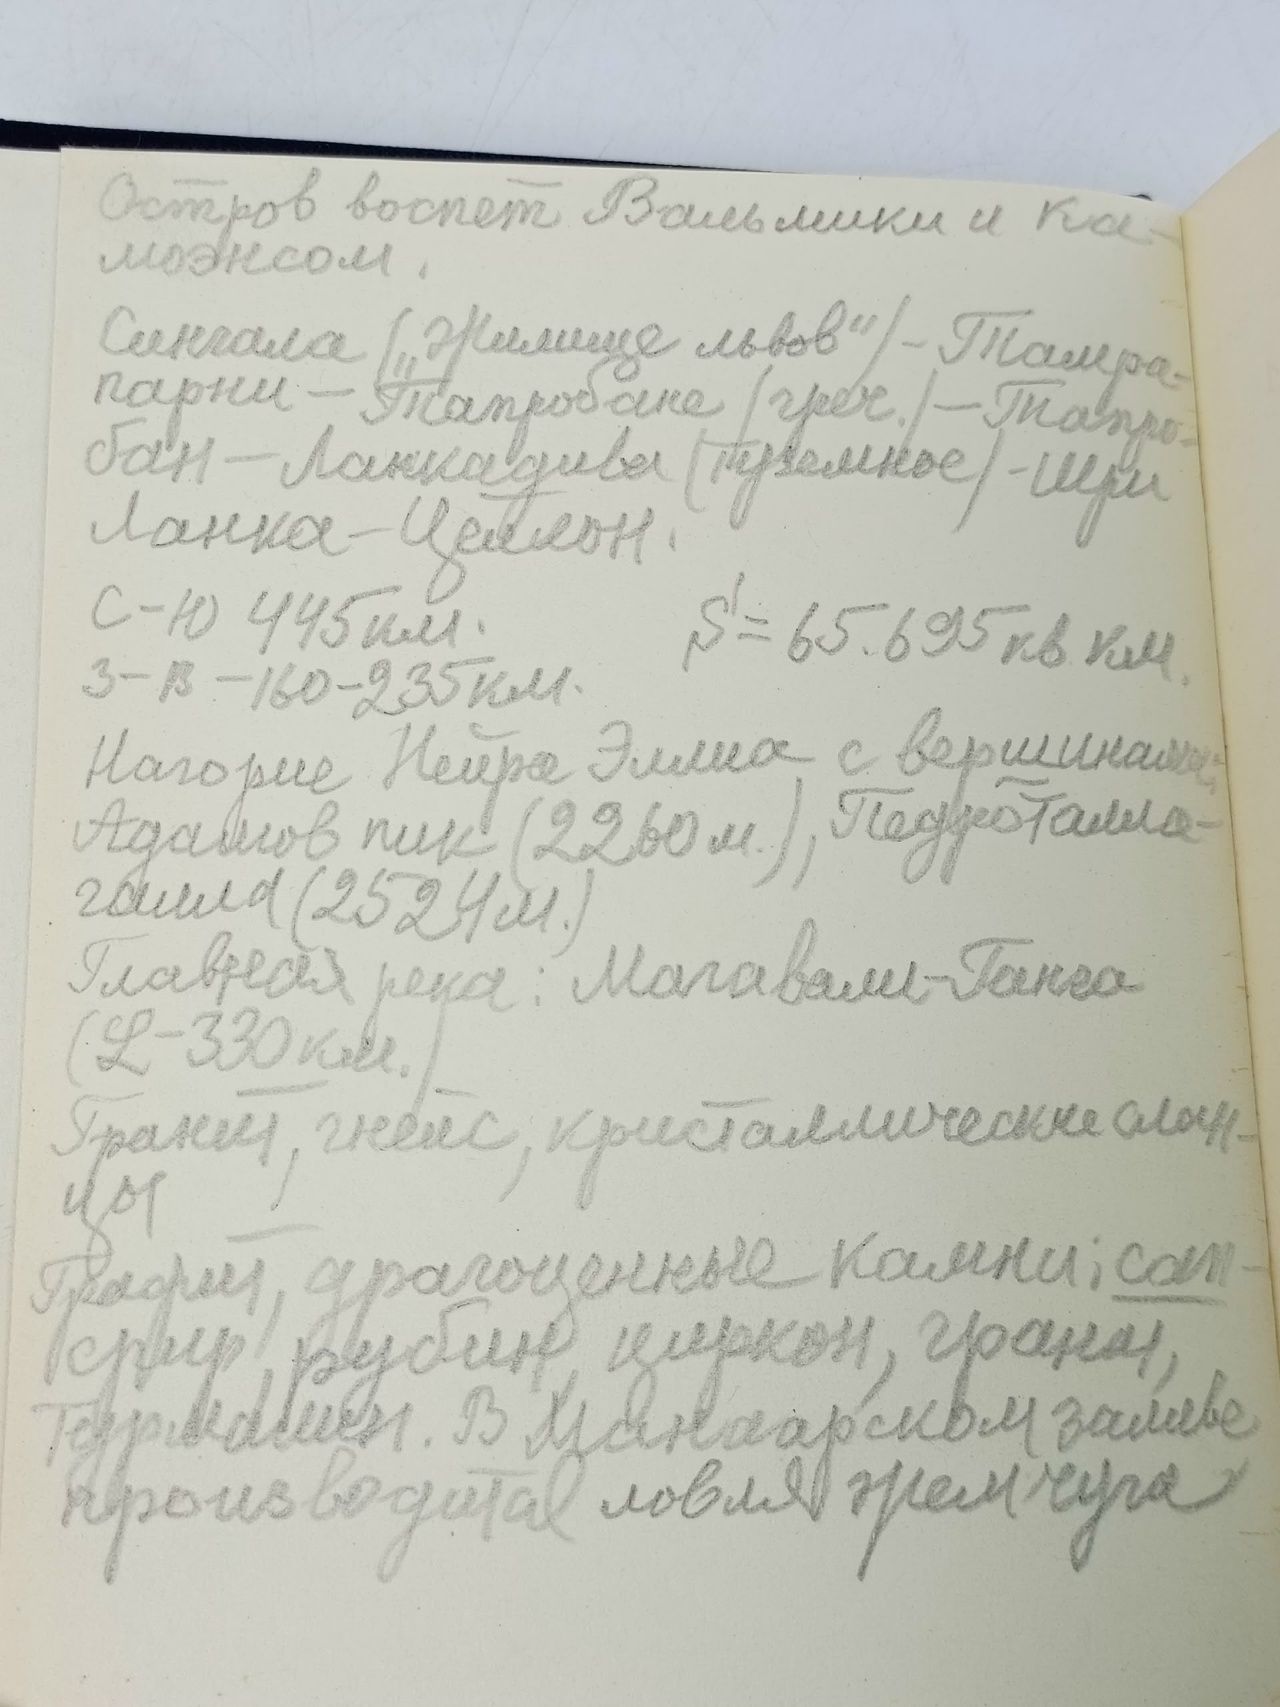 Остров воспет Вальмики и Ка-
моэнсом.
Сингала („Жилище львов“) – Тамра-
парни – Тапробане (греч.) – Тапро-
бан – Ланкадива (туземное) – Шри
Ланка – Цейлон.
С-Ю 445 км. S = 65.695 кв км.
З-В – 160-235 км.
Нагорие Нейра Эллиа с вершинами:
Адамов пик (2260 м.), Педроталла-
галла (2524 м.)
Главная река: Магавали-Ганга
(L-330 км.)
Гранит, гнейс, кристаллические слан-
цы
Графит, драгоценные камни; сап-
фир, рубин, циркон, гранат,
турмалин. В Манаарском заливе
производится ловля жемчуга